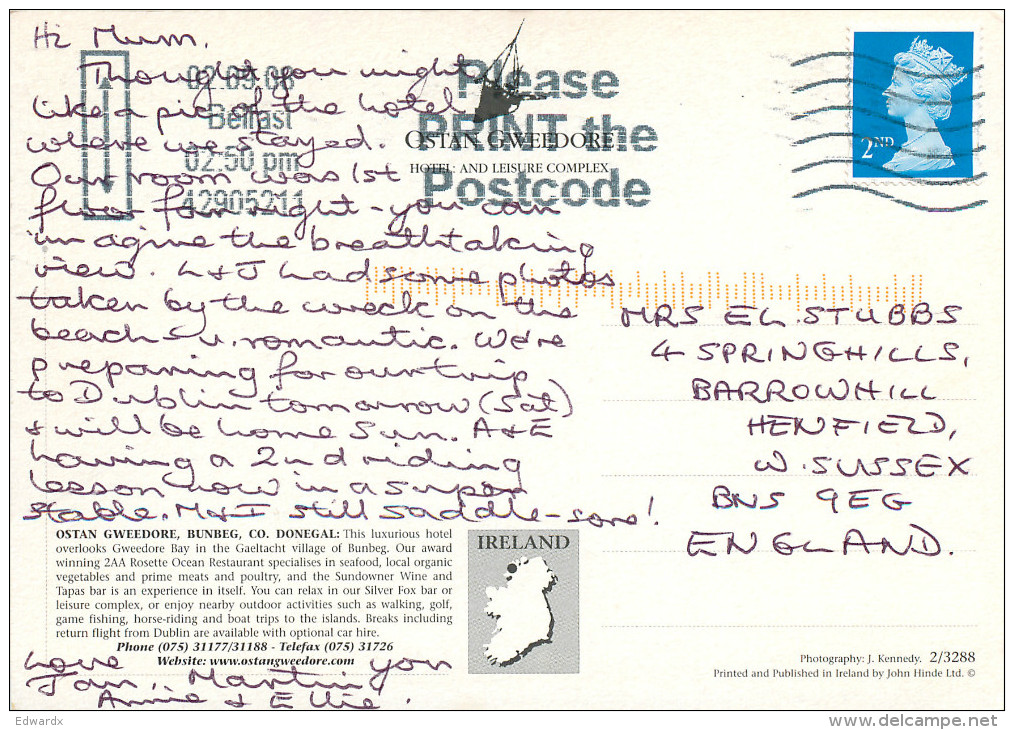 Hi Mum,
Thought you might
like a pic of the hotel
where we stayed.
Our room was 1st
floor far right - you can
imagine the breathtaking
view. L+J had some photos
taken by the wreck on the
beach - v. romantic. We're
preparing for our trip
to Dublin tomorrow (Sat)
+ will be home Sun. A+E
having a 2nd riding
lesson now in a super
stable. M+I still saddle-sore!
02.05.08
Belfast
02:50 pm
42905211
Please
PRINT the
Postcode
OSTAN GWEEDORE
HOTEL AND LEISURE COMPLEX
2ND
MRS E.L. STUBBS
4 SPRINGHILLS,
BARROWHILL
HENFIELD,
W. SUSSEX
BN5 9EG
ENGLAND.
OSTAN GWEEDORE, BUNBEG, CO. DONEGAL: This luxurious hotel
overlooks Gweedore Bay in the Gaeltacht village of Bunbeg. Our award
winning 2AA Rosette Ocean Restaurant specialises in seafood, local organic
vegetables and prime meats and poultry, and the Sundowner Wine and
Tapas bar is an experience in itself. You can relax in our Silver Fox bar or
leisure complex, or enjoy nearby outdoor activities such as walking, golf,
game fishing, horse-riding and boat trips to the islands. Breaks including
return flight from Dublin are available with optional car hire.
Phone (075) 31177/31188 - Telefax (075) 31726
Website: www.ostangweedore.com
IRELAND
love you
Jan, Martin,
Annie & Ellie.
Photography: J. Kennedy. 2/3288
Printed and Published in Ireland by John Hinde Ltd. ©
Edwardx
delcampe.net